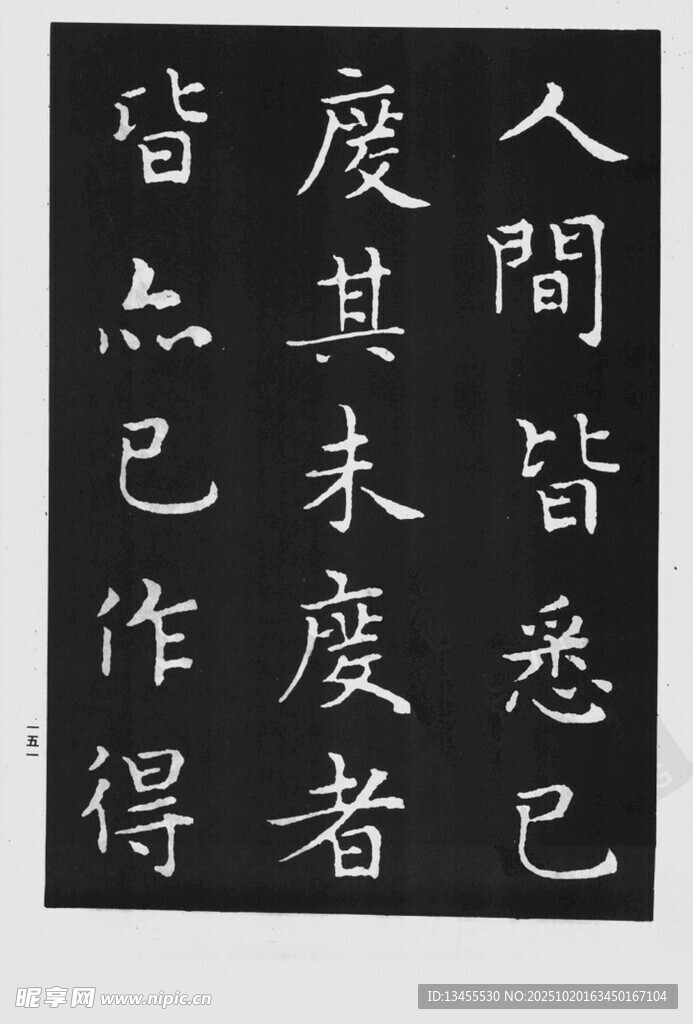 人間皆悉已
度其未度者
皆亦已作得
一五一
昵享网 www.nipic.cn
ID:13455530 NO:20251020163450167104